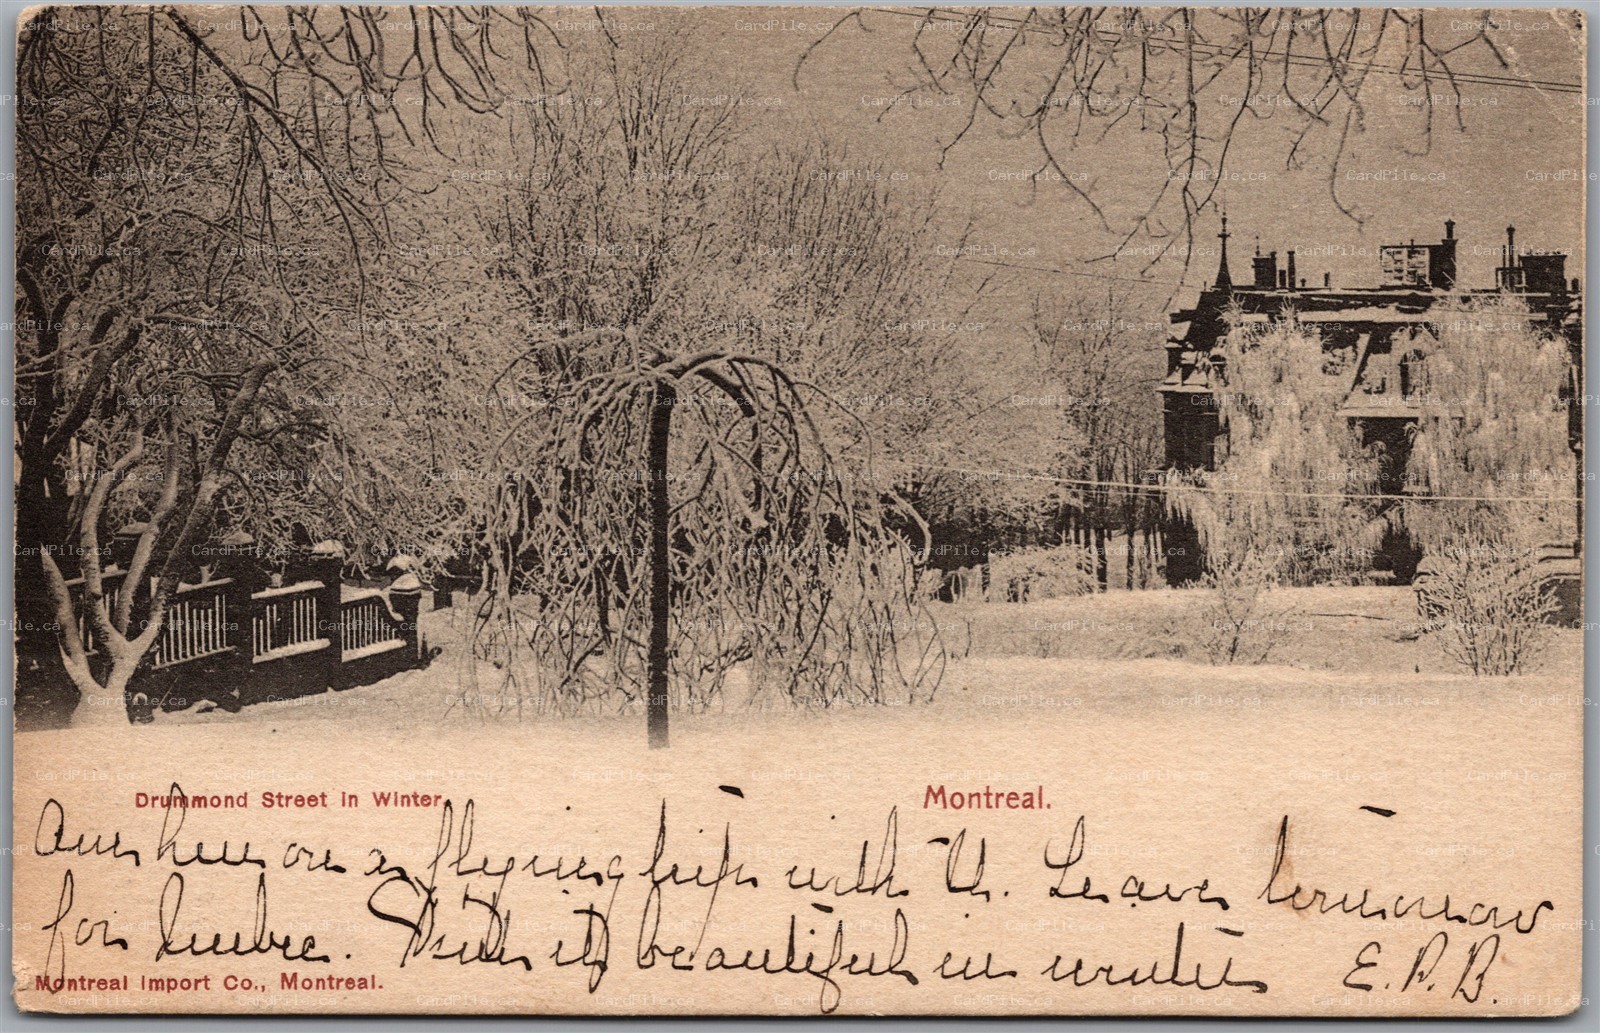 Drummond Street in Winter.
Montreal.
Am here on a flying trip with H. Leave tomorrow
for Quebec. This is beautiful in winter E. P. B.
Montreal Import Co., Montreal.
CardPile.ca